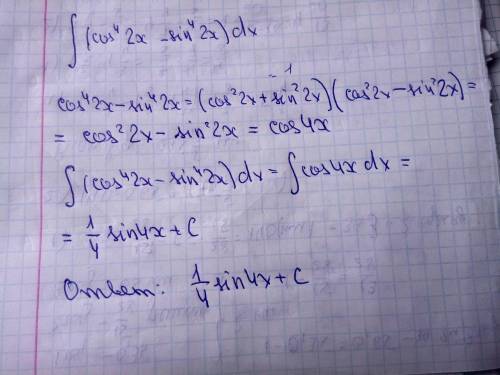 ∫(cos⁴ 2x - sin⁴ 2x)dx
cos⁴2x - sin⁴2x = (cos²2x + sin²2x)(cos²2x - sin²2x) =
= cos²2x - sin²2x = cos4x
∫(cos⁴2x - sin⁴2x)dx = ∫cos4x dx =
= 1/4 sin4x + C
Ответ: 1/4 sin4x + C